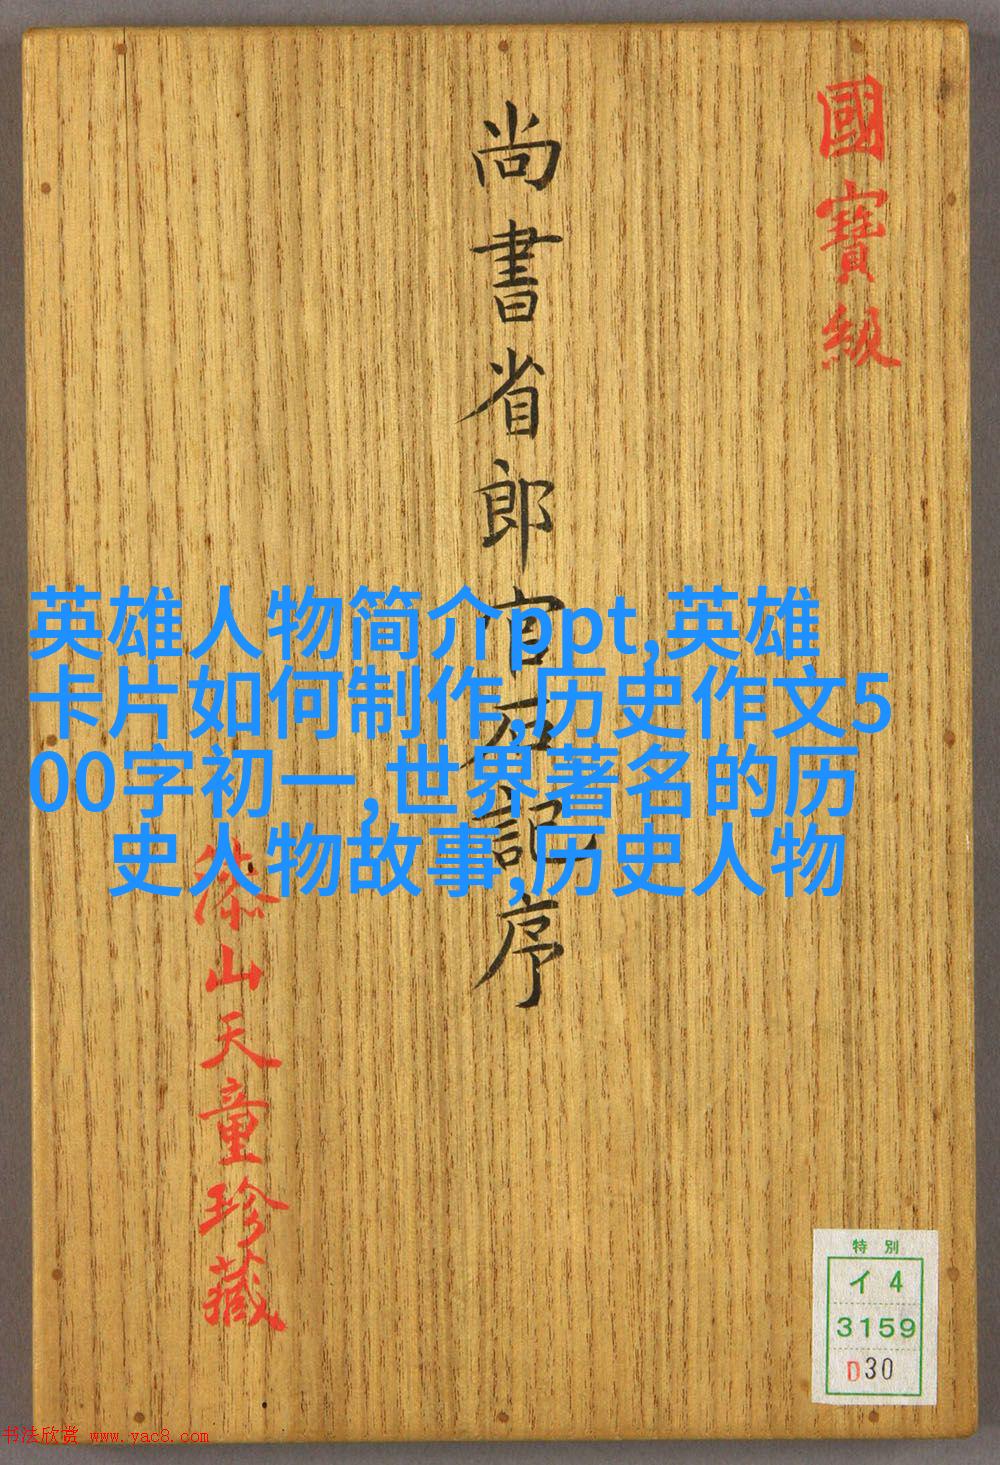 國寶級
尚書省郎官石記序
漆山天童珍藏
英雄人物简介ppt,英雄
卡片如何制作,历史作文5
00字初一,世界著名的历
史人物故事,历史人物
特別
イ4
3159
D30
书法欣赏 www.yac8.com